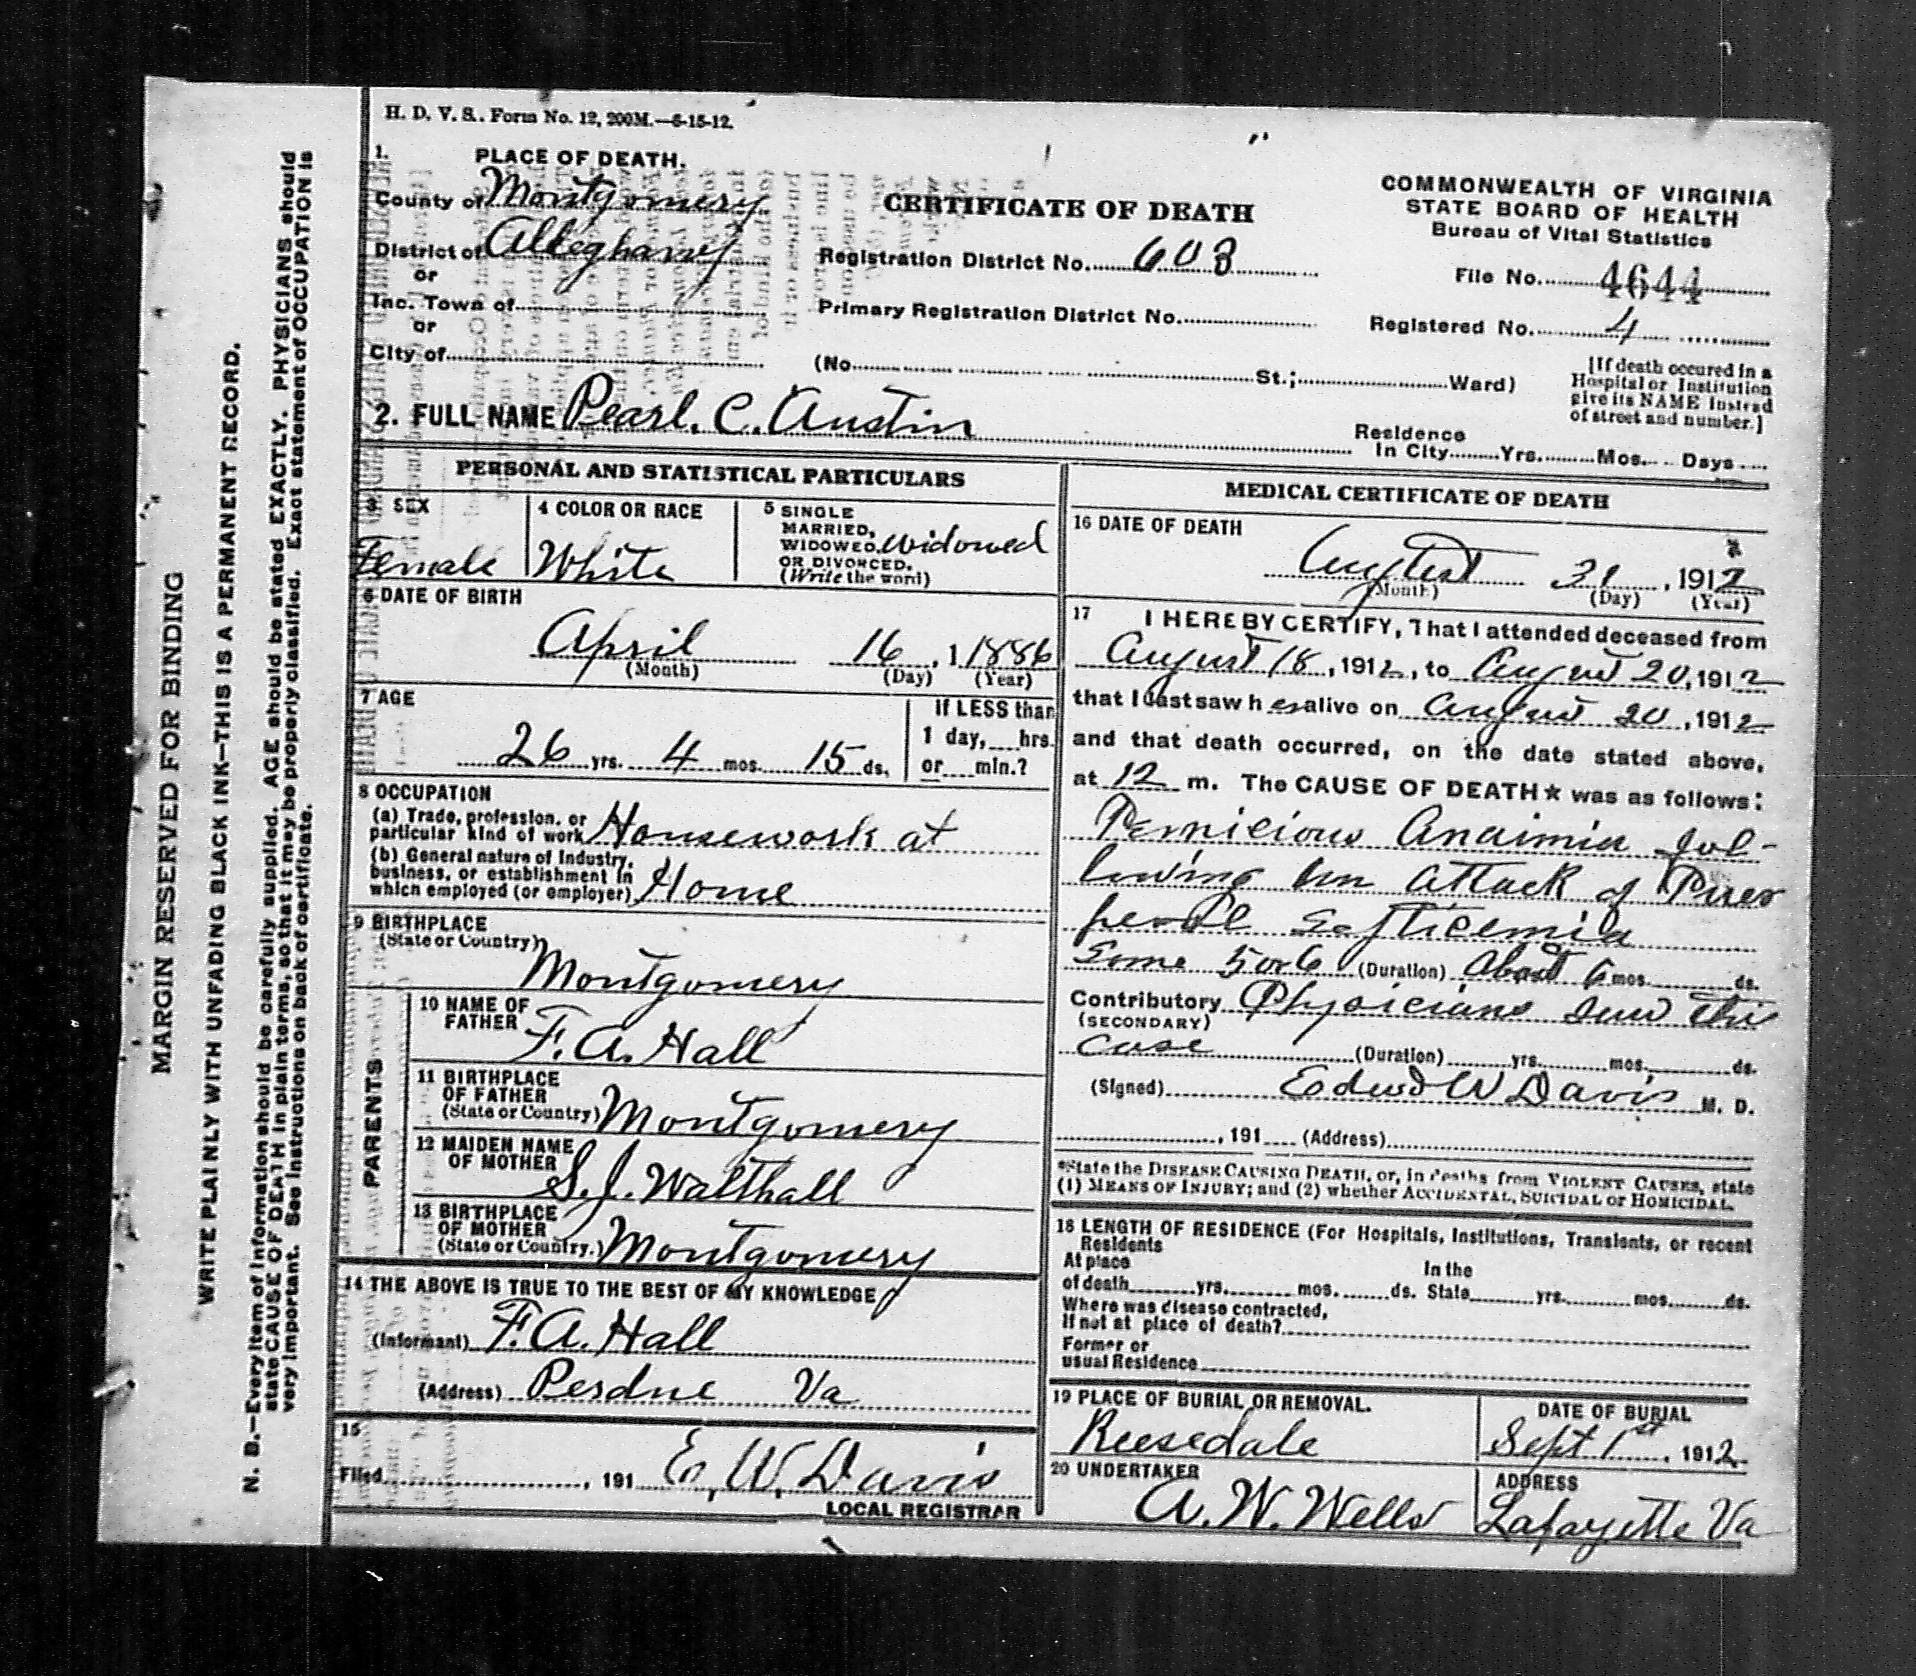 H. D. V. S. Form No. 12, 200M.—6-15-12.
1. PLACE OF DEATH.
County of Montgomery
District of Alleghany
or
Inc. Town of
or
City of
CERTIFICATE OF DEATH
Registration District No. 603
Primary Registration District No.
(No. St.; Ward)
COMMONWEALTH OF VIRGINIA
STATE BOARD OF HEALTH
Bureau of Vital Statistics
File No. 4644
Registered No. 4
[If death occured in a
Hospital or Institution
give its NAME instead
of street and number.]
2. FULL NAME Pearl. C. Austin
Residence
In City Yrs. Mos. Days
PERSONAL AND STATISTICAL PARTICULARS
3 SEX
Female
4 COLOR OR RACE
White
5 SINGLE
MARRIED,
WIDOWED, widowed
OR DIVORCED.
(Write the word)
6 DATE OF BIRTH
April 16, 1 1886
(Month) (Day) (Year)
7 AGE
26 yrs. 4 mos. 15 ds.
If LESS than
1 day, hrs.
or min.?
8 OCCUPATION
(a) Trade, profession, or
particular kind of work Housework at
(b) General nature of Industry,
business, or establishment in
which employed (or employer) Home
9 BIRTHPLACE
(State or Country)
Montgomery
PARENTS
10 NAME OF
FATHER F. A. Hall
11 BIRTHPLACE
OF FATHER
(State or Country) Montgomery
12 MAIDEN NAME
OF MOTHER S. J. Walthall
13 BIRTHPLACE
OF MOTHER
(State or Country.) Montgomery
14 THE ABOVE IS TRUE TO THE BEST OF MY KNOWLEDGE
(Informant) F. A. Hall
(Address) Perdue Va
15
Filed , 191 E. W. Davis
LOCAL REGISTRAR
MEDICAL CERTIFICATE OF DEATH
16 DATE OF DEATH
August 31, 1912
(Month) (Day) (Year)
17 I HEREBY CERTIFY, That I attended deceased from
August 18, 1912, to August 20, 1912
that I last saw her alive on August 20, 1912
and that death occurred, on the date stated above,
at 12 m. The CAUSE OF DEATH★ was as follows:
Pernicious Anaimia fol-
lowing an attack of Puer
peral Septicemia
Some 5 or 6 (Duration) About 6 mos. ds.
Contributory Physicians saw this
(SECONDARY)
case (Duration) yrs. mos. ds.
(Signed) Edwd W Davis M. D.
, 191 (Address)
*State the DISEASE CAUSING DEATH, or, in deaths from VIOLENT CAUSES, state
(1) MEANS OF INJURY; and (2) whether ACCIDENTAL, SUICIDAL or HOMICIDAL.
18 LENGTH OF RESIDENCE (For Hospitals, Institutions, Transients, or recent
Residents
At place In the
of death yrs. mos. ds. State yrs. mos. ds.
Where was disease contracted,
If not at place of death?
Former or
usual Residence
19 PLACE OF BURIAL OR REMOVAL.
Reesedale
DATE OF BURIAL
Sept 1st, 1912
20 UNDERTAKER
A. W. Wells
ADDRESS
Lafayette Va
MARGIN RESERVED FOR BINDING
WRITE PLAINLY WITH UNFADING BLACK INK—THIS IS A PERMANENT RECORD.
N. B.—Every item of information should be carefully supplied. AGE should be stated EXACTLY. PHYSICIANS should
state CAUSE OF DEATH in plain terms, so that it may be properly classified. Exact statement of OCCUPATION is
very important. See instructions on back of certificate.